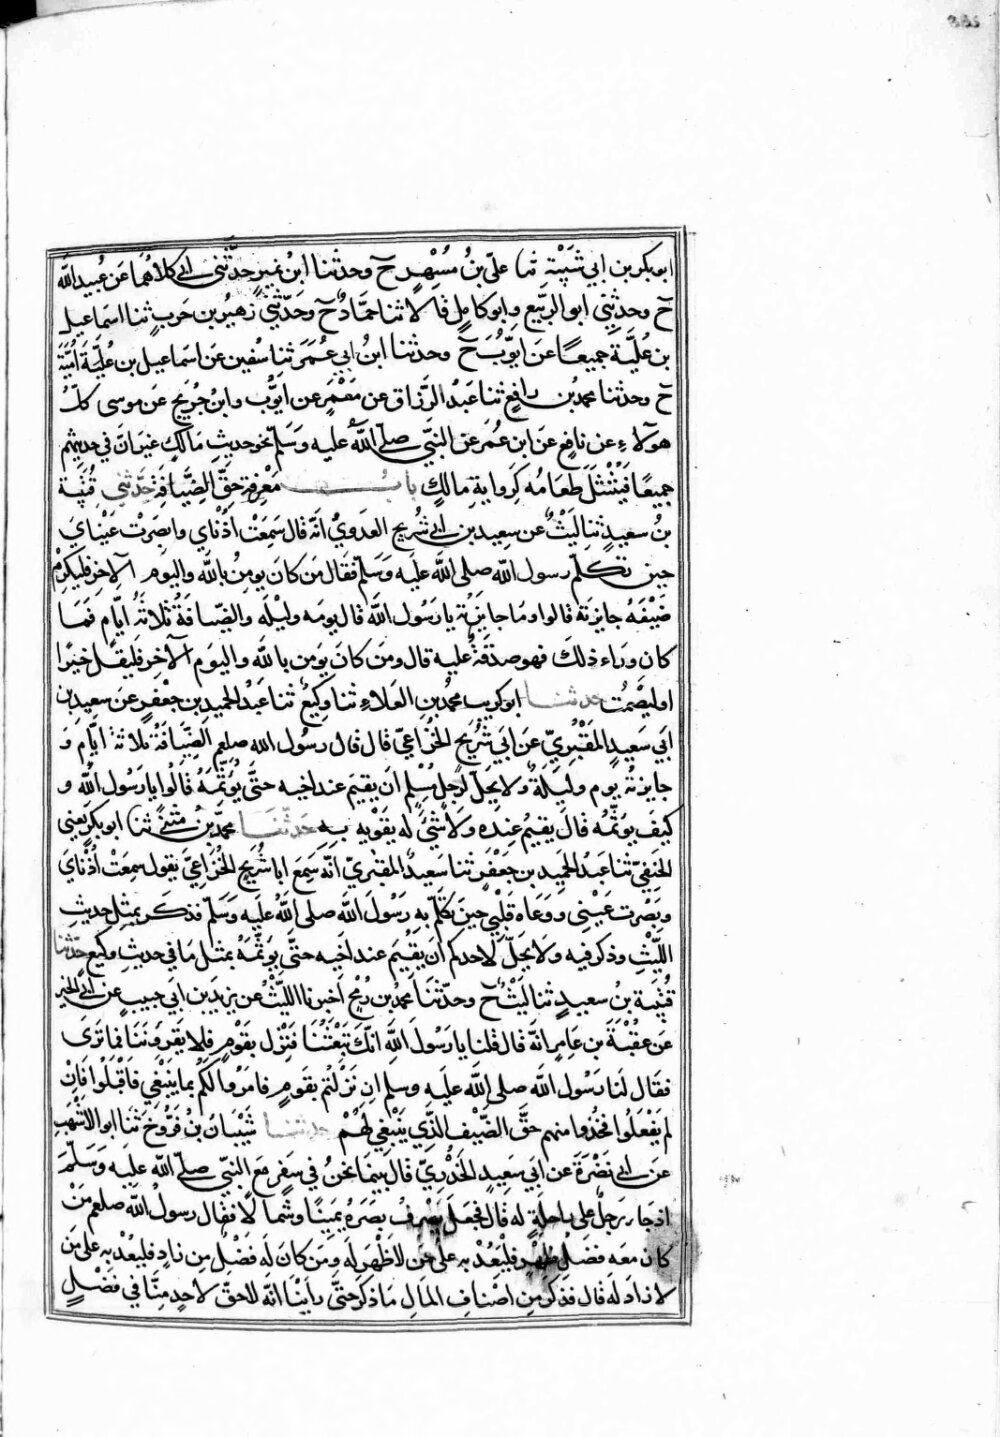 ابوبكر بن ابي شَيْبَة ثنا عليّ بنُ مُسْهِرٍ ح وحدثنا ابنُ نمير حدّثني ابي كلاهُما عَن عُبيد الله
ح وحدثني ابو الرّبيع وابو كامل قالا ثنا حمّادٌ ح وحَدّثني زهيرُ بن حَربٍ ثنا اسماعيل
بن عُليّة جميعًا عَن ايّوُب ح وحدثنا ابنُ ابي عُمَرَ ثنا سُفين عَن اسماعيل بن عُليّة اُميَّة
ح وحدثنا محمدُ بن رافعٍ ثنا عَبدُ الرّزاق عن مَعْمَرٍ عن ايّوُب وابن جُريجٍ عَن موسى كلُّ
هؤلاءِ عن نافعٍ عَن ابن عُمَرَ عن النبيّ صلّى اللهُ عليه وَسَلّم نحو حديثِ مَالكٍ غيرَ اَنّ في حديثهم
جميعًا فيُنْتَثَلَ طعَامُه كَرِوايةِ مالكٍ بابُ مَعْرفة حَقّ الضِّيافَة حَدّثني قُتَيبة
بنُ سعيدٍ ثنا ليْثٌ عن سعيدِ بن ابي شُريحٍ العدَويُ اَنّه قال سَمِعَتْ اُذُناي وابصَرَتْ عَيْنايَ
حين تكلّم رسول الله صلى الله عليه وَسَلّم فقَال مَن كانَ يومِنُ بالله واليَوم الاخِرِ فليُكرِمْ
ضَيْفَهُ جايزته قالوا ومَا جايزته يا رَسُول اللهَ قال يومَه وليْلَه والضّيافةُ ثلاثةُ ايّامٍ فَمَا
كانَ وَراءِ ذلك فهو صدقَةٌ عليه قال ومن كانَ يَومن بالله واليوم الآخرِ فليقل خَيْرًا
اوليَصْمُت حدثنا ابو كريب محمدُ بن العَلاءِ ثنا وَكيعٌ ثنا عَبدُ الحميد بن جعْفرٍ عَن سعيدِ بن
ابي سَعيدٍ المَقْبُريّ عَن ابي شُرَيحٍ الخُزاعيّ قال قال رسُول الله صلعم الضّيَافَةُ ثلاثةُ ايّام وَ
جايزتهُ يوم وليلةٌ ولا يحلّ لرجلٍ مُسْلِمٍ انَ يقيمَ عند اخيه حتّى يُوثِّمَهُ قالُوا يا رَسُول الله و
كيف يوثّمُه قال يقيمُ عِنده ولا شَئَ له يقريه بِهِ حَدّثنا محمّدُ بنُ مثنّى ثنا ابو بكرٍ يعني
الحَنفيّ ثنا عَبدُ الحَميدِ بن جَعْفَرٍ ثنا سَعيدٌ المقبريّ انّه سَمِعَ ابا شُرَيحٍ الخُزاعيّ يقول سمِعَتْ اُذُنايَ
وبَصُرت عَيْني ووَعَاه قَلْبي حينَ تكلّم بِهِ رَسُولَ الله صلى اللهُ عليه وَسَلّم فذكرَ بمثلِ حديثِ
الليْثِ وذكر فيه ولا يَحلّ لاحدكم اَن يقيمَ عند اخيه حتّى يوثّمَهُ بمثل مَا في حديثِ وكيعٍ حدّثنا
قُتَيبة بنُ سعيدٍ ثنا ليْثٌ ح وحدّثنا محمدُ بن رُمْحٍ اَخبرنا الليْثُ عن يزيدَ بن ابي حبيبٍ عن ابي الخير
عَن عُقبَةَ بن عَامِرٍ انّهَ قال قلنا يا رَسُول اللهِ انّك تَبْعَثُنا فننزِل بقَوْمٍ فلا يَقرُونَنَا فما تَرى
فقال لنا رَسُول الله صلى الله عليه وسلم ان نَزَلْتُم بقَومٍ فامَرُوا لكُم بما ينبغي فاقْبَلُوا فَاِنْ
لم يَفْعَلوُا فخُذوا منهم حَقَّ الضّيف الّذي يَنْبَغي لهُمْ حدثنا شَيْبَانُ بنُ فَرُّوخَ ثنا ابو الاشهَبِ
عَن ابي نَضْرَةَ عن ابي سَعيدٍ الخُدْريّ قال بينما نحنُ في سَفرٍ مَعَ النّبيّ صلّى الله عَليه وَسَلّمَ
اذ جاءَ رجلٌ على راحِلَةٍ له قال فجَعَلَ يصرفُ بصَرَهُ يمَينًا وشِمالًا فقال رسولُ الله صلعم مَنْ
كانَ معَه فضلُ ظهْرٍ فليَعُدْ به على مَن لا ظَهْرَ له ومَن كانَ له فَضْلٌ مِن زادٍ فليعُدْ به على مَن
لا زادَ له قال فذكرَ مِن اصنافِ المَالِ ما ذكرَ حتَّى رايْنا انّه لا حَقَّ لاحدٍ منّا في فَضْلٍ